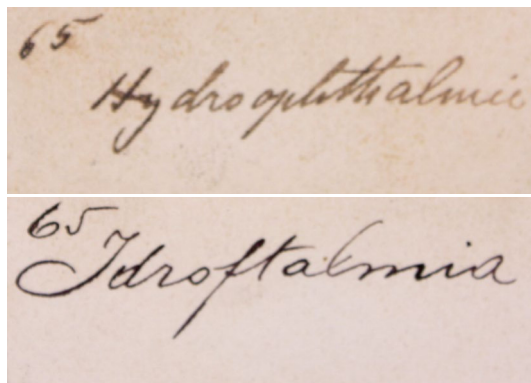 65
Hydroophthalmie
65
Idroftalmia